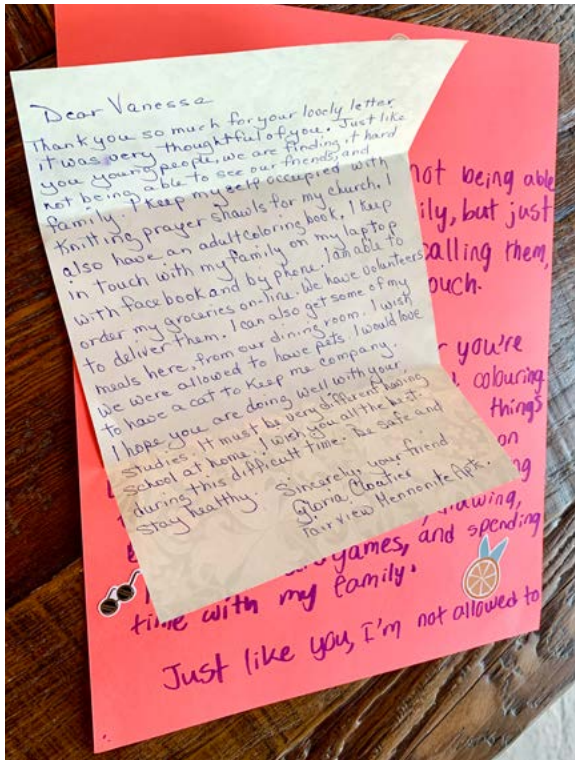 Dear Vanessa
Thank you so much for your lovely letter
it was very thoughtful of you. Just like
you young people, we are finding it hard
not being able to see our friends, and
family. I keep myself occupied with
Knitting prayer shawls for my church. I
also have an adult coloring book. I keep
in touch with my family on my laptop
with facebook and by phone. I am able to
order my groceries on-line. We have volunteers
to deliver them. I can also get some of my
meals here, from our dining room. I wish
we were allowed to have pets. I would love
to have a cat to keep me company.
I hope you are doing well with your
studies. It must be very different having
school at home. I wish you all the best.
during this difficult time. Be safe and
stay healthy. Sincerely, your friend
Gloria Cloutier
Fairview Mennonite Apts.
not being able
ily, but just
calling them,
ouch.
you're
colouring
things
on
drawing,
games, and spending
time with my family.
Just like you, I'm not allowed to